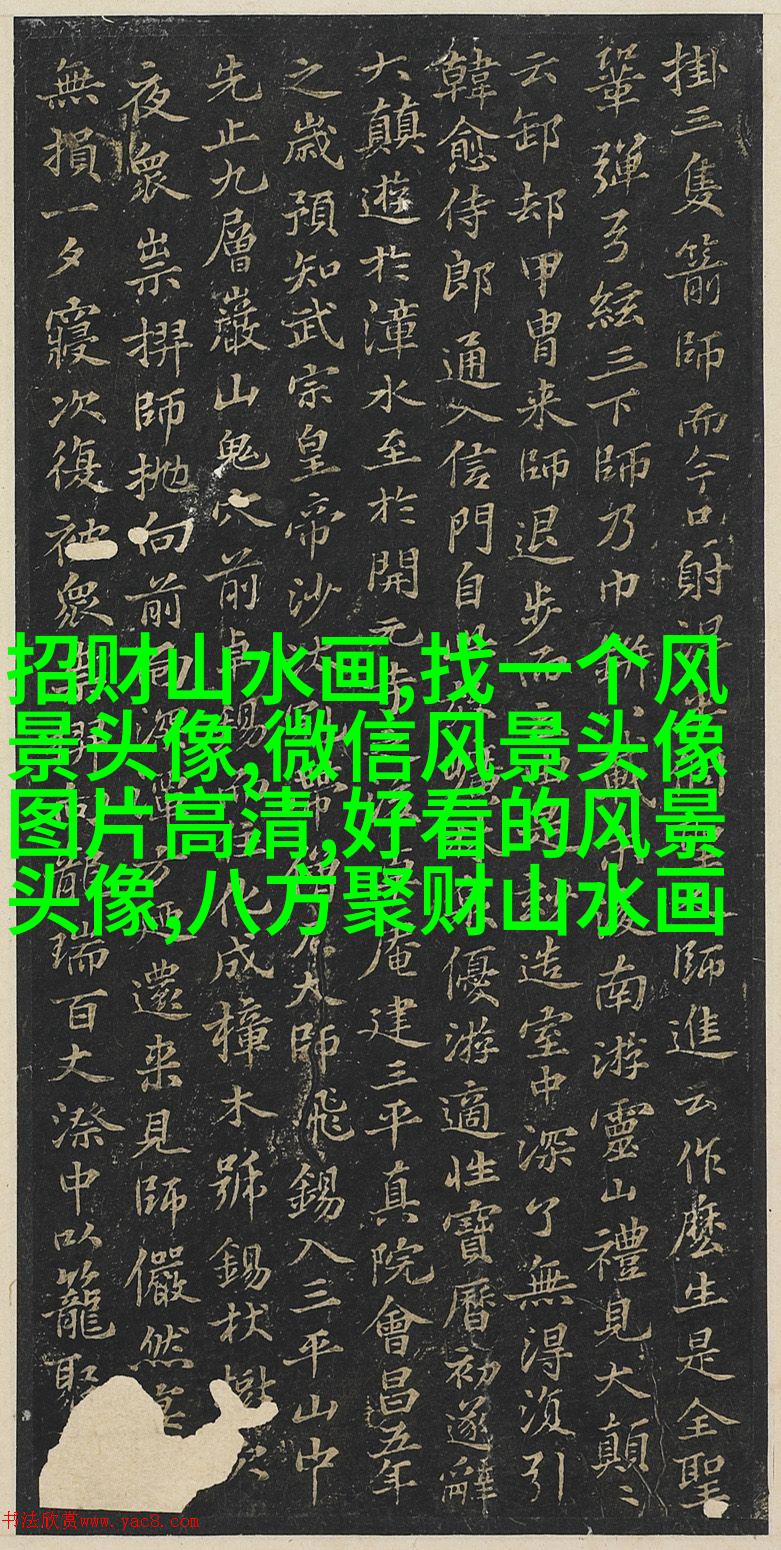 掛三隻箭師而今只射得 師進云作麼生是全聖
鞏彈弓絃三下師乃巾 南游靈山禮見大顛〻
云卸却甲胄来師退步而 造室中深了無得湏引
韓愈侍郎通入信門自 優游適性寶曆初遂辭
大顛遊於漳水至於開元 庵建三平真院會昌五年
之歲預知武宗皇帝沙汰 大師飛錫入三平山中
先止九層巖山鬼穴前卓錫 化成樟木號錫杖樹次
夜衆祟掑師抛向前 還来見師儼然
無損一夕寢次復被衆 龍瑞百丈漈中以籠聚
招财山水画,找一个风
景头像,微信风景头像
图片高清,好看的风景
头像,八方聚财山水画
书法欣赏www.yac8.com